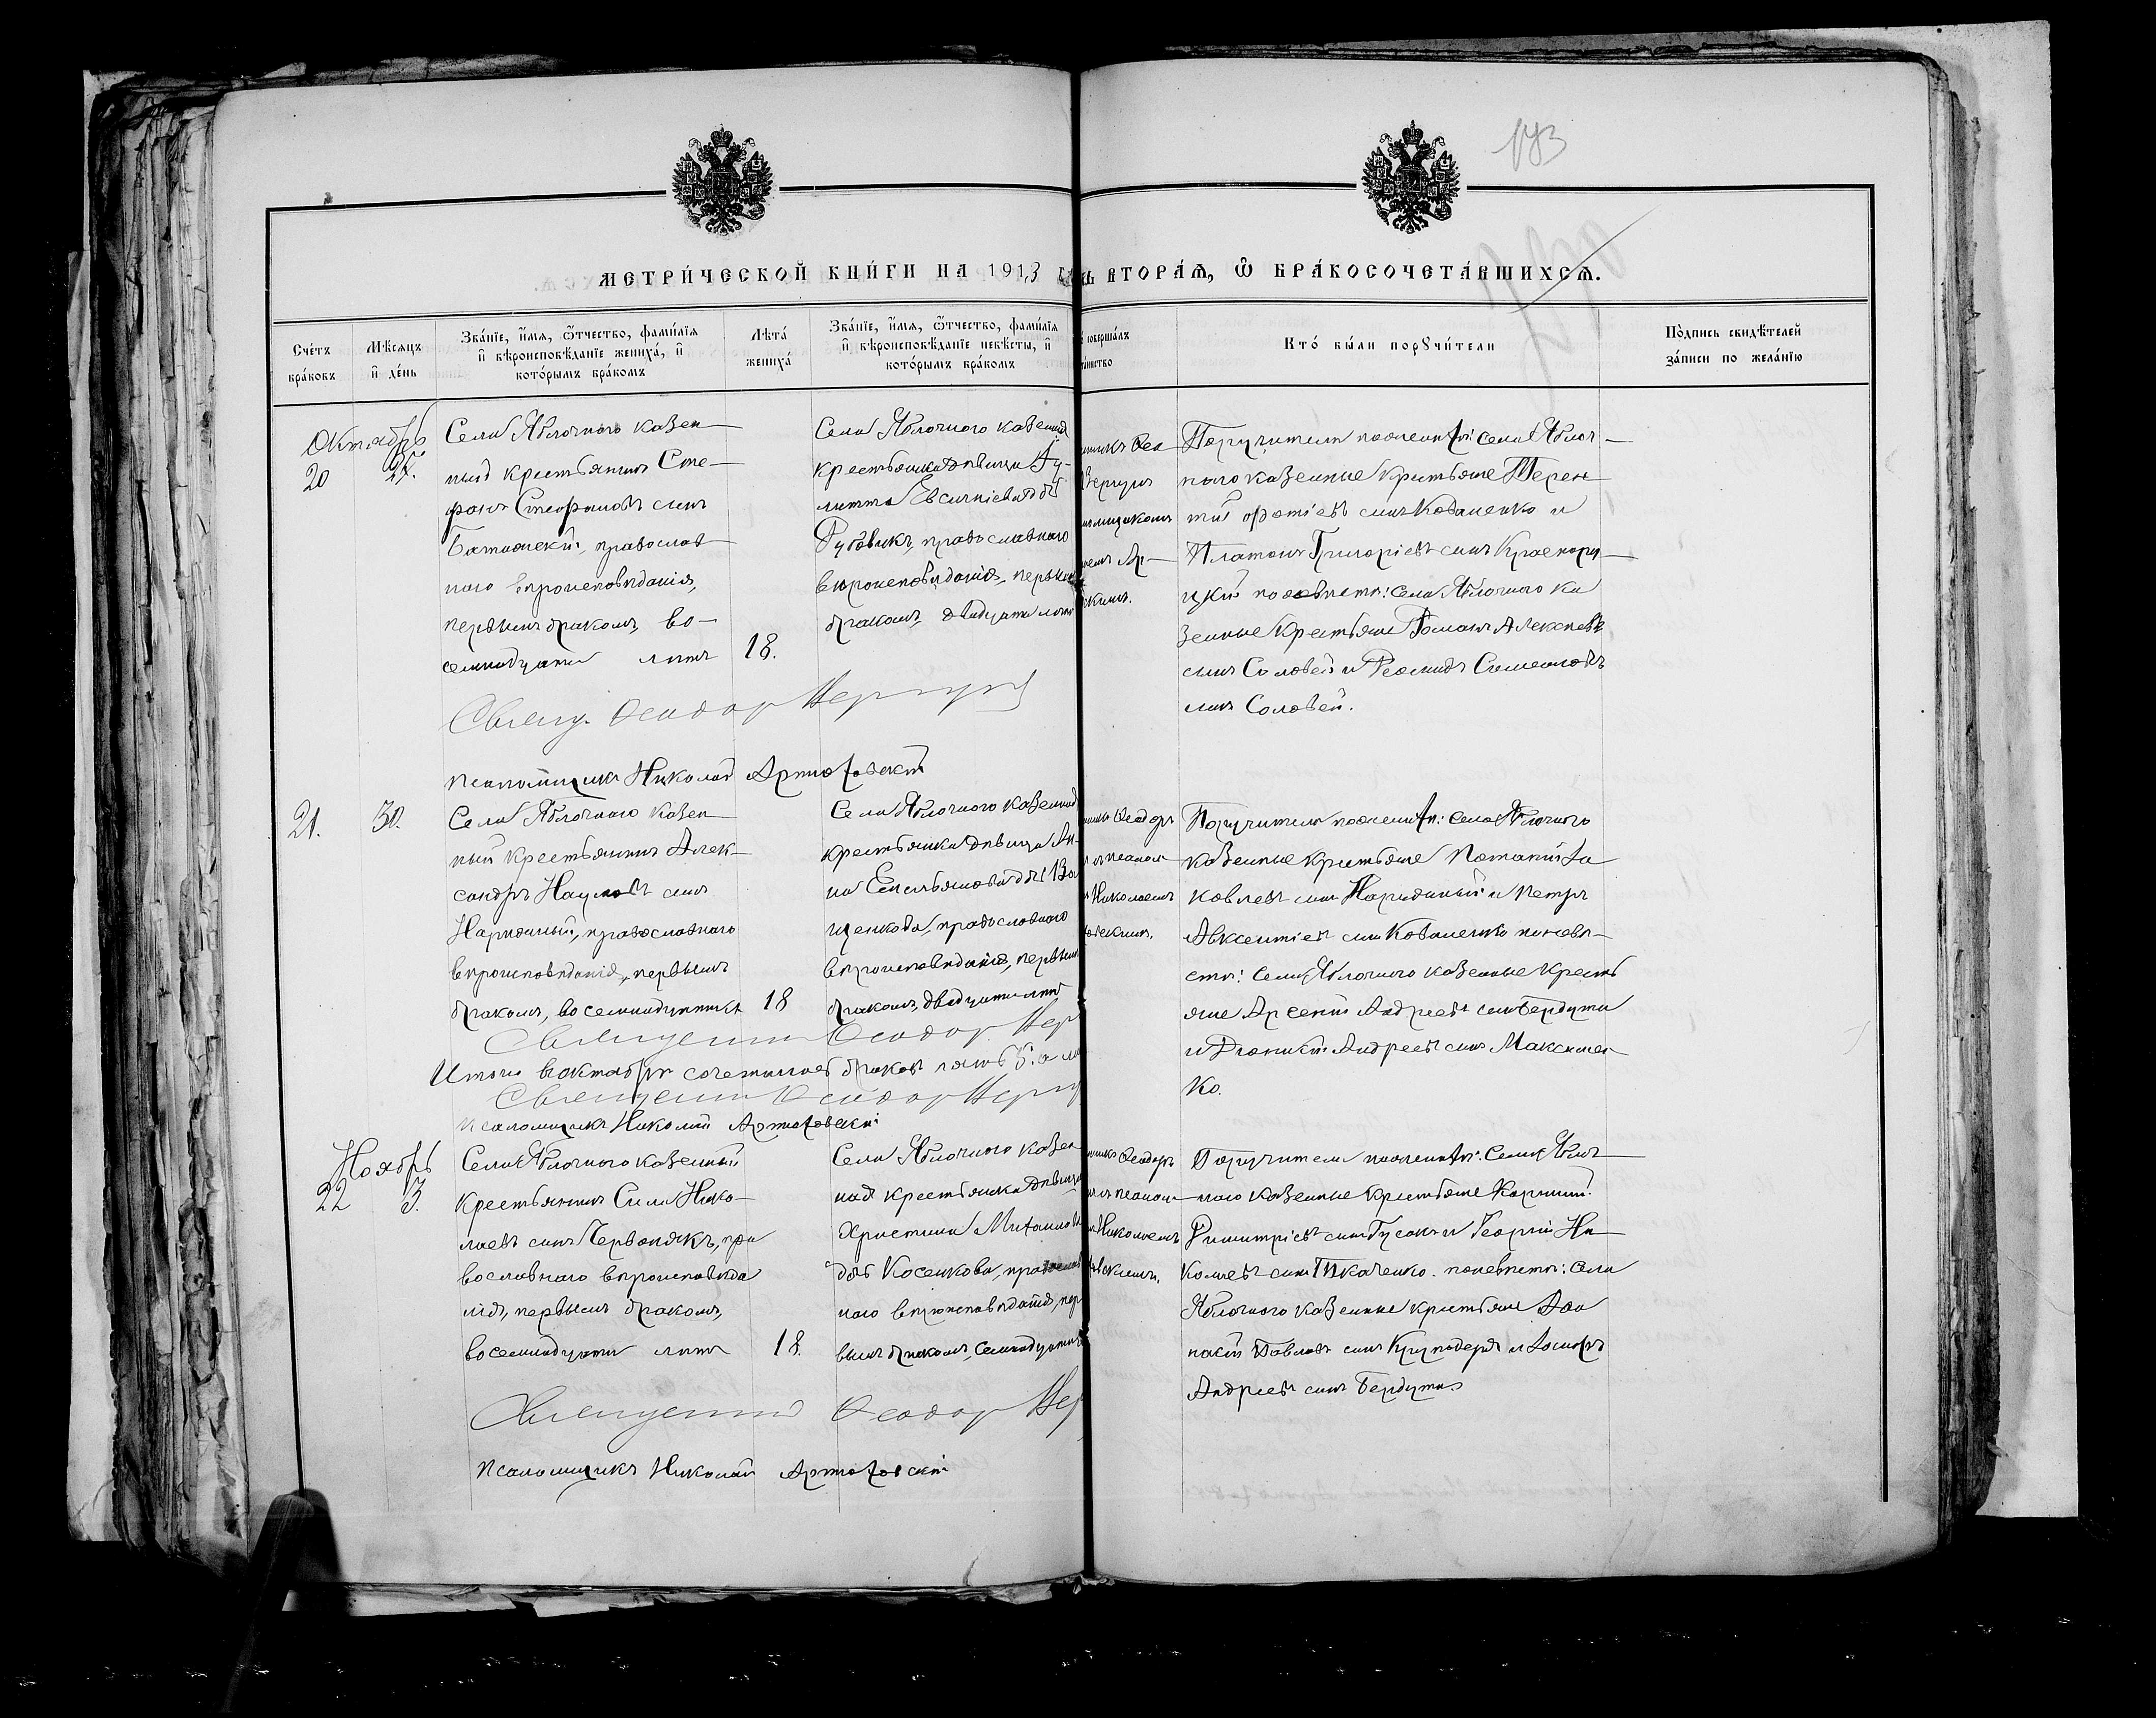 193
МЕТРИ́ЧЕСКОЙ КНИ́ГИ НА 1913 ВТОРА́Я, Ѽ БРА́КОСОЧЕТА́ВШИХСЯ.
Сче́тъ бра́ковъ
Мѣ́сяцъ и҆ де́нь
Зва́нїе, и҆́мя, ѻ҆́тчество, фами́лїя и҆ вѣроисповѣ́данїе жениха́, и҆ кото́рымъ бра́комъ
Лѣта́ жениха́
Зва́нїе, и҆́мя, ѻ҆́тчество, фами́лїя и҆ вѣроисповѣ́данїе невѣ́сты, и҆ кото́рымъ бра́комъ
соверша́лъ
Кто́ бы́ли порꙋчи́тели
По́дпись свидѣ́телей за́писи по жела́нїю
Октябрь
20
Села Яблочного казен
ный крестьянинъ Сте-
фанъ Стефановъ сынъ
православ
наго вѣроисповѣданія,
первымъ бракомъ, во-
семнадцати лѣтъ
18.
Села Яблочного казенная
крестьянка дѣвица Іу-
литта
православнаго
вѣроисповѣданія, первымъ
бракомъ, двадцати лѣтъ
Поручители по женихѣ: села Яблоч-
ного казенные крестьяне Терен
тій Фотіевъ сынъ Коваленко и
Платонъ Григоріевъ сынъ
по невѣстѣ: села Яблочного ка
зенные крестьяне Романъ Алексѣевъ
сынъ Соловей и Симеоновъ
сынъ Соловей.
Священ. Ѳеодоръ
Псаломщикъ Николай Артюховскій
21.
30.
Села Яблочного казен
ный крестьянинъ Алек-
сандръ Наумовъ сынъ
Нарижный, православнаго
вѣроисповѣданія, первымъ
бракомъ, восемнадцати лѣтъ
18
Села Яблочного казенная
крестьянка дѣвица Ан-
на Емельянова дч.
православнаго
вѣроисповѣданія, первымъ
бракомъ, двадцати лѣтъ
Ѳеодоръ
Николаемъ
Поручители по женихѣ: села Яблочного
казенные крестьяне Потапій Іа
ковлевъ сынъ Нарижный и Петръ
Авксентіевъ сынъ Коваленко по невѣ-
стѣ: села Яблочного казенные кресть
яне Арсеній Андреевъ сынъ Бердута
и Андреевъ сынъ Максимен
ко.
Священникъ Ѳеодоръ
Итого въ октябрѣ браковъ пять 5.
Священникъ Ѳеодоръ
Псаломщикъ Николай Артюховскій
Ноябрь
22
3.
Села Яблочного казенный
крестьянинъ Сила Нико-
лаевъ сынъ Червонякъ, пра
вославнаго вѣроисповѣда
нія, первымъ бракомъ,
восемнадцати лѣтъ
18.
Села Яблочного казен
ная крестьянка дѣвица
Христина Михаилова
дчь Косенкова, православ
наго вѣроисповѣданія, пер
вымъ бракомъ, семнадцати
Ѳеодоръ
Николаемъ
Поручители по женихѣ: села Яблоч
ного казенные крестьяне Корнилій
Димитріевъ сынъ Гусакъ и Георгій Ни
колаевъ сынъ Ткаченко. по невѣстѣ: села
Яблочного казенные крестьяне
Павловъ сынъ и Іосифъ
Андреевъ сынъ Бердута
Священникъ Ѳеодоръ
Псаломщикъ Николай Артюховскій